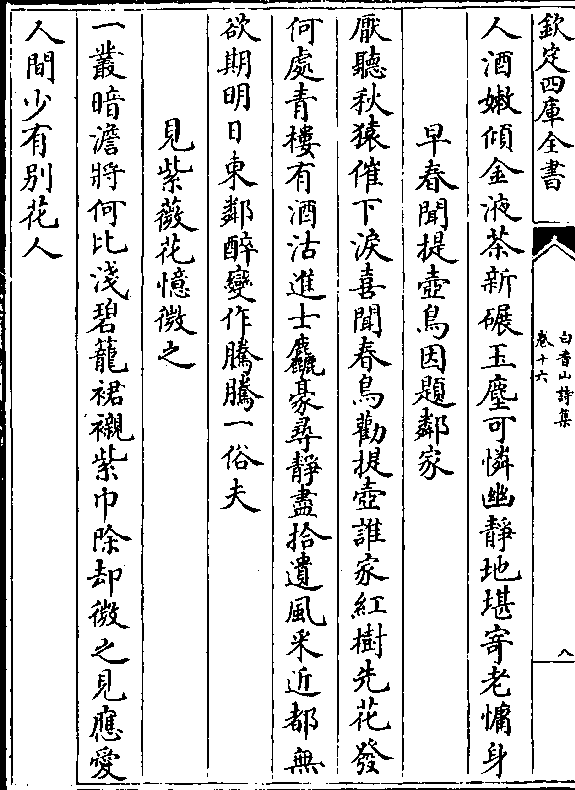 欽定四庫全書
白香山詩集
卷十六
八
人酒嫩傾金液茶新碾玉塵可憐幽靜地堪寄老慵身
早春聞提壺鳥因題鄰家
厭聽秋猿催下淚喜聞春鳥勸提壺誰家紅樹先花發
何處青樓有酒沽進士麤豪尋靜盡拾遺風采近都無
欲期明日東鄰醉變作騰騰一俗夫
見紫薇花憶微之
一叢暗澹將何比淺碧籠裙襯紫巾除却微之見應愛
人間少有別花人